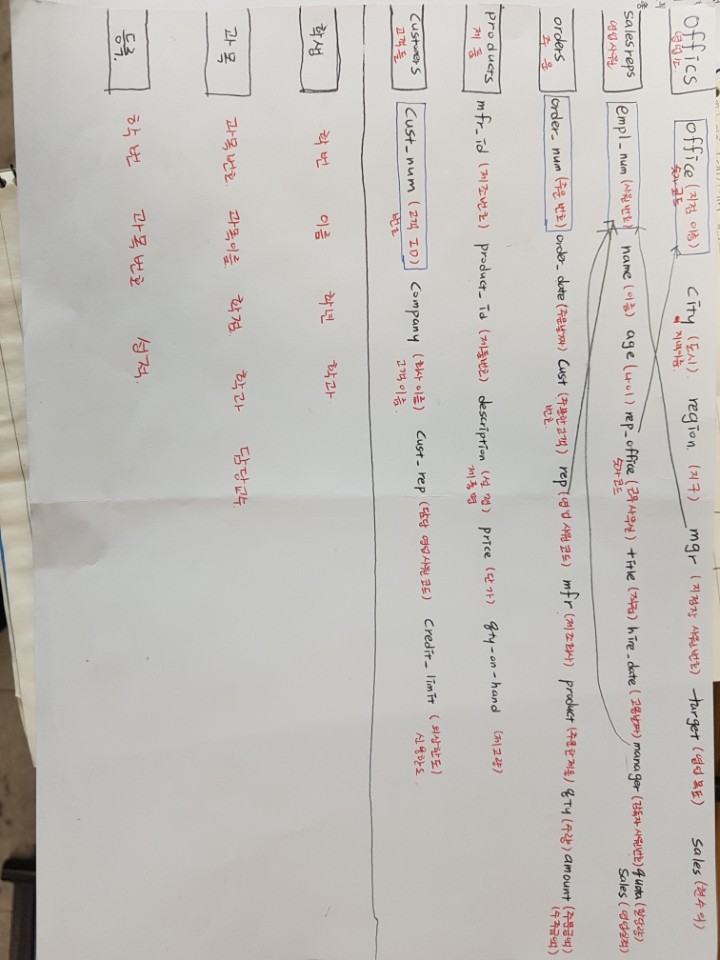 Offics office (지점 이름) city (도시) region (지구) mgr (지점장 사원번호) target (영업 목표) sales (현수익)
영업소 숫자코드 지역이름
salesreps empl_num (사원번호) name (이름) age (나이) rep_office (근무사무실) title (직점) hire_date (고용날짜) manager (감독자 사원번호) quota (할당량)
영업사원 숫자코드 Sales (영업실적)
orders order_num (주문 번호) order_date (주문날짜) Cust (주문한고객) rep (영업 사원 코드) mfr (제조회사) product (주문한제품) QTy (수량) amount (주문금액)
주문 번호. (수주금액)
products mfr_id (제조번호) product_id (제품번호) description (설명) price (단가) qty-on-hand (재고량)
제품 제품명
Customers Cust_num (고객 ID) Company (회사 이름) Cust_rep (담당 영업사원 코드) Credit_limit (외상한도)
고객들 번호 고객이름. 신용한도.
학생 학번 이름 학년 학과
과목 과목번호. 과목이름. 학점. 학과 담당교수.
등록. 학번 과목번호 성적.